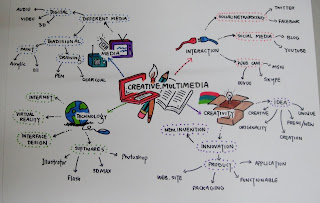 AUDIO
DIGITAL
DIFFERENT MEDIA
VIDEO
3D
TRADISIONAL
MEDIA
PRINT
DRAWING
Acrylic
PEN
CHARCOAL
TWITTER
SOCIAL NETWORKING
FACEBOOK
SOCIAL MEDIA
BLOG
YOUTUBE
INTERACTION
WEB CAM
MSN
SKYPE
CREATIVE MULTIMEDIA
INTERNET
VIRTUAL REALITY
TECHNOLOGY
INTERFACE DESIGN
SOFTWARES
Illustrator
Flash
3D MAX
Photoshop
CREATIVITY
IDEA
UNIQUE
FRESH/NEW
CREATION
ORIGINALITY
NEW INVENTION
INNOVATION
PRODUCT
APPLICATION
WEB SITE
PACKAGING
FUNCTIONABLE